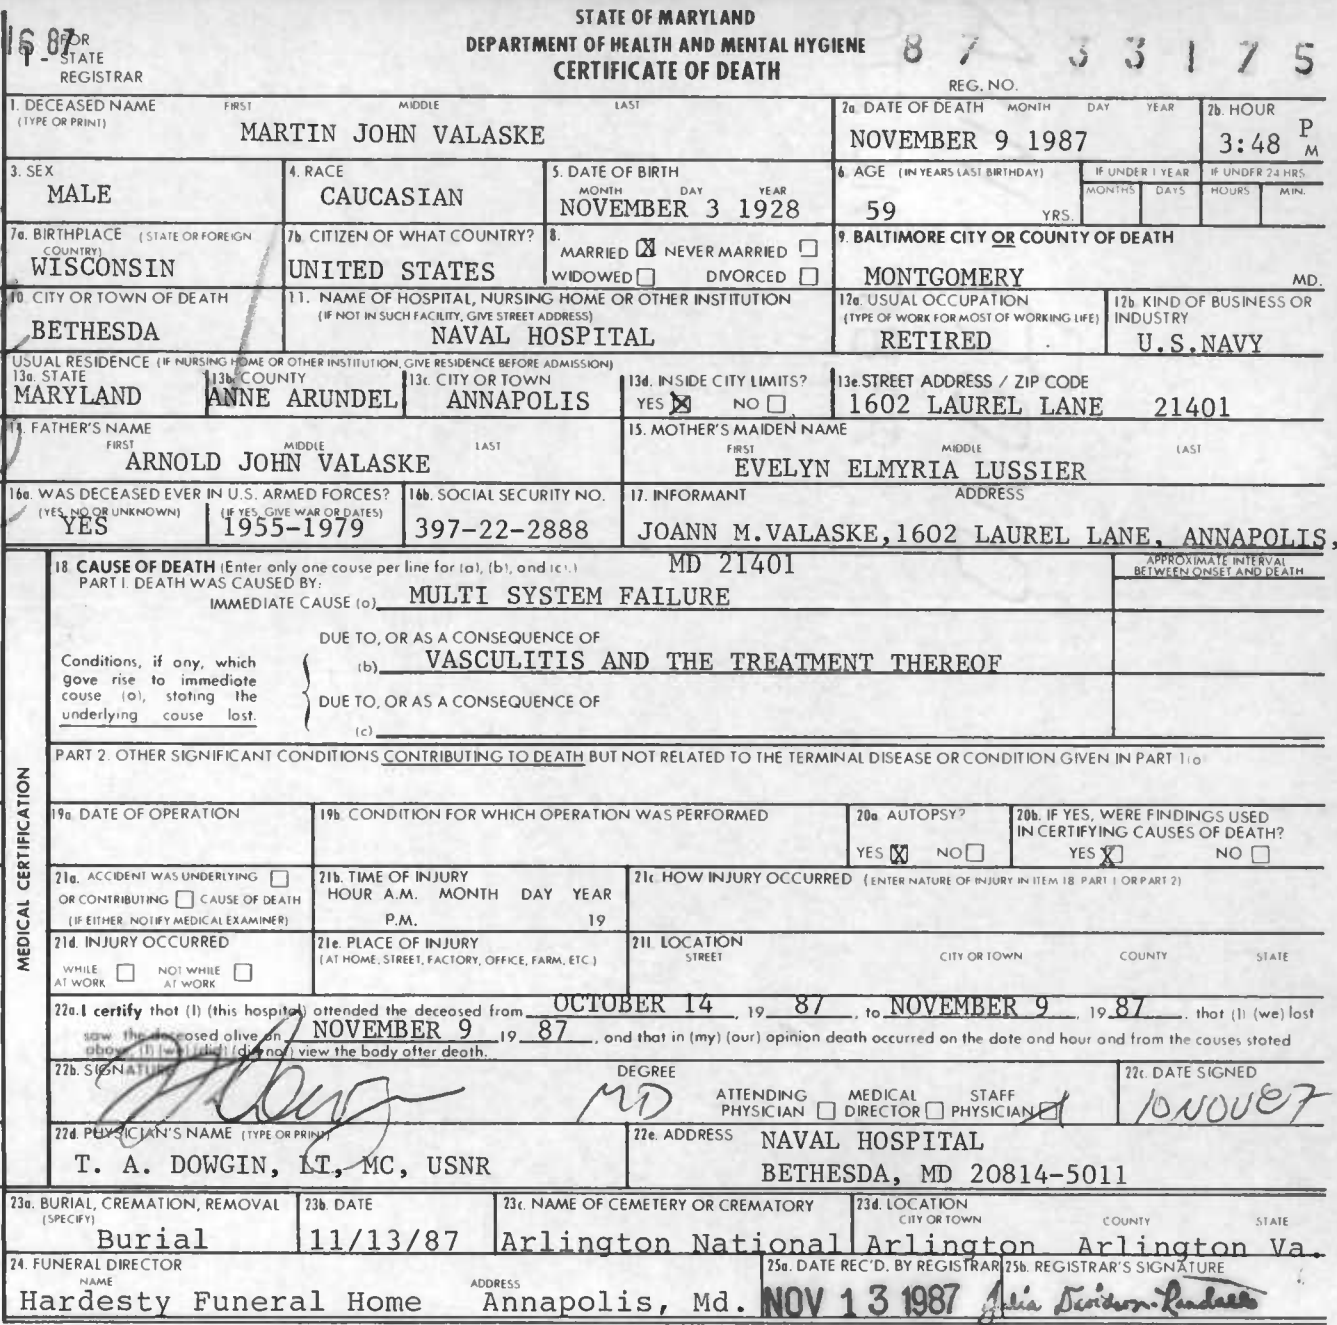 STATE OF MARYLAND
DEPARTMENT OF HEALTH AND MENTAL HYGIENE
CERTIFICATE OF DEATH
FOR
STATE
REGISTRAR
87 33175
REG. NO.
1. DECEASED NAME FIRST MIDDLE LAST
(TYPE OR PRINT)
MARTIN JOHN VALASKE
2a. DATE OF DEATH MONTH DAY YEAR
NOVEMBER 9 1987
2b. HOUR
3:48 P M
3. SEX
MALE
4. RACE
CAUCASIAN
5. DATE OF BIRTH
MONTH DAY YEAR
NOVEMBER 3 1928
6. AGE (IN YEARS LAST BIRTHDAY)
59 YRS.
IF UNDER 1 YEAR
MONTHS DAYS
IF UNDER 24 HRS
HOURS MIN.
7a. BIRTHPLACE (STATE OR FOREIGN
COUNTRY)
WISCONSIN
7b. CITIZEN OF WHAT COUNTRY?
UNITED STATES
8.
MARRIED X NEVER MARRIED
WIDOWED DIVORCED
9. BALTIMORE CITY OR COUNTY OF DEATH
MONTGOMERY MD.
10. CITY OR TOWN OF DEATH
BETHESDA
11. NAME OF HOSPITAL, NURSING HOME OR OTHER INSTITUTION
(IF NOT IN SUCH FACILITY, GIVE STREET ADDRESS)
NAVAL HOSPITAL
12a. USUAL OCCUPATION
(TYPE OF WORK FOR MOST OF WORKING LIFE)
RETIRED
12b. KIND OF BUSINESS OR
INDUSTRY
U.S.NAVY
USUAL RESIDENCE (IF NURSING HOME OR OTHER INSTITUTION, GIVE RESIDENCE BEFORE ADMISSION)
13a. STATE
MARYLAND
13b. COUNTY
ANNE ARUNDEL
13c. CITY OR TOWN
ANNAPOLIS
13d. INSIDE CITY LIMITS?
YES X NO
13e. STREET ADDRESS / ZIP CODE
1602 LAUREL LANE 21401
14. FATHER'S NAME
FIRST MIDDLE LAST
ARNOLD JOHN VALASKE
15. MOTHER'S MAIDEN NAME
FIRST MIDDLE LAST
EVELYN ELMYRIA LUSSIER
16a. WAS DECEASED EVER IN U.S. ARMED FORCES?
(YES, NO OR UNKNOWN) (IF YES, GIVE WAR OR DATES)
YES 1955-1979
16b. SOCIAL SECURITY NO.
397-22-2888
17. INFORMANT ADDRESS
JOANN M.VALASKE,1602 LAUREL LANE, ANNAPOLIS,
MD 21401
18. CAUSE OF DEATH (Enter only one cause per line for (a), (b), and (c).)
PART I. DEATH WAS CAUSED BY:
IMMEDIATE CAUSE (a) MULTI SYSTEM FAILURE
APPROXIMATE INTERVAL
BETWEEN ONSET AND DEATH
DUE TO, OR AS A CONSEQUENCE OF
(b) VASCULITIS AND THE TREATMENT THEREOF
Conditions, if any, which
gave rise to immediate
cause (a), stating the
underlying cause last.
DUE TO, OR AS A CONSEQUENCE OF
(c)
PART 2. OTHER SIGNIFICANT CONDITIONS CONTRIBUTING TO DEATH BUT NOT RELATED TO THE TERMINAL DISEASE OR CONDITION GIVEN IN PART 1(a)
MEDICAL CERTIFICATION
19a. DATE OF OPERATION
19b. CONDITION FOR WHICH OPERATION WAS PERFORMED
20a. AUTOPSY?
YES X NO
20b. IF YES, WERE FINDINGS USED
IN CERTIFYING CAUSES OF DEATH?
YES X NO
21a. ACCIDENT WAS UNDERLYING
OR CONTRIBUTING CAUSE OF DEATH
(IF EITHER NOTIFY MEDICAL EXAMINER)
21b. TIME OF INJURY
HOUR A.M. MONTH DAY YEAR
P.M. 19
21c. HOW INJURY OCCURRED (ENTER NATURE OF INJURY IN ITEM 18 PART 1 OR PART 2)
21d. INJURY OCCURRED
WHILE AT WORK NOT WHILE AT WORK
21e. PLACE OF INJURY
(AT HOME, STREET, FACTORY, OFFICE, FARM, ETC.)
21f. LOCATION
STREET CITY OR TOWN COUNTY STATE
22a. I certify that (I) (this hospital) attended the deceased from OCTOBER 14, 19 87, to NOVEMBER 9, 19 87, that (I) (we) last
saw the deceased alive on NOVEMBER 9 19 87, and that in (my) (our) opinion death occurred on the date and hour and from the causes stated
above, (I) (we) (did) (did not) view the body after death.
22b. SIGNATURE
DEGREE
MD
ATTENDING PHYSICIAN MEDICAL DIRECTOR STAFF PHYSICIAN
22c. DATE SIGNED
10 NOV 87
22d. PHYSICIAN'S NAME (TYPE OR PRINT)
T. A. DOWGIN, LT, MC, USNR
22e. ADDRESS
NAVAL HOSPITAL
BETHESDA, MD 20814-5011
23a. BURIAL, CREMATION, REMOVAL
(SPECIFY)
Burial
23b. DATE
11/13/87
23c. NAME OF CEMETERY OR CREMATORY
Arlington National
23d. LOCATION
CITY OR TOWN COUNTY STATE
Arlington Arlington Va.
24. FUNERAL DIRECTOR
NAME ADDRESS
Hardesty Funeral Home Annapolis, Md.
25a. DATE REC'D. BY REGISTRAR
NOV 13 1987
25b. REGISTRAR'S SIGNATURE
Julia Davidson-Randall